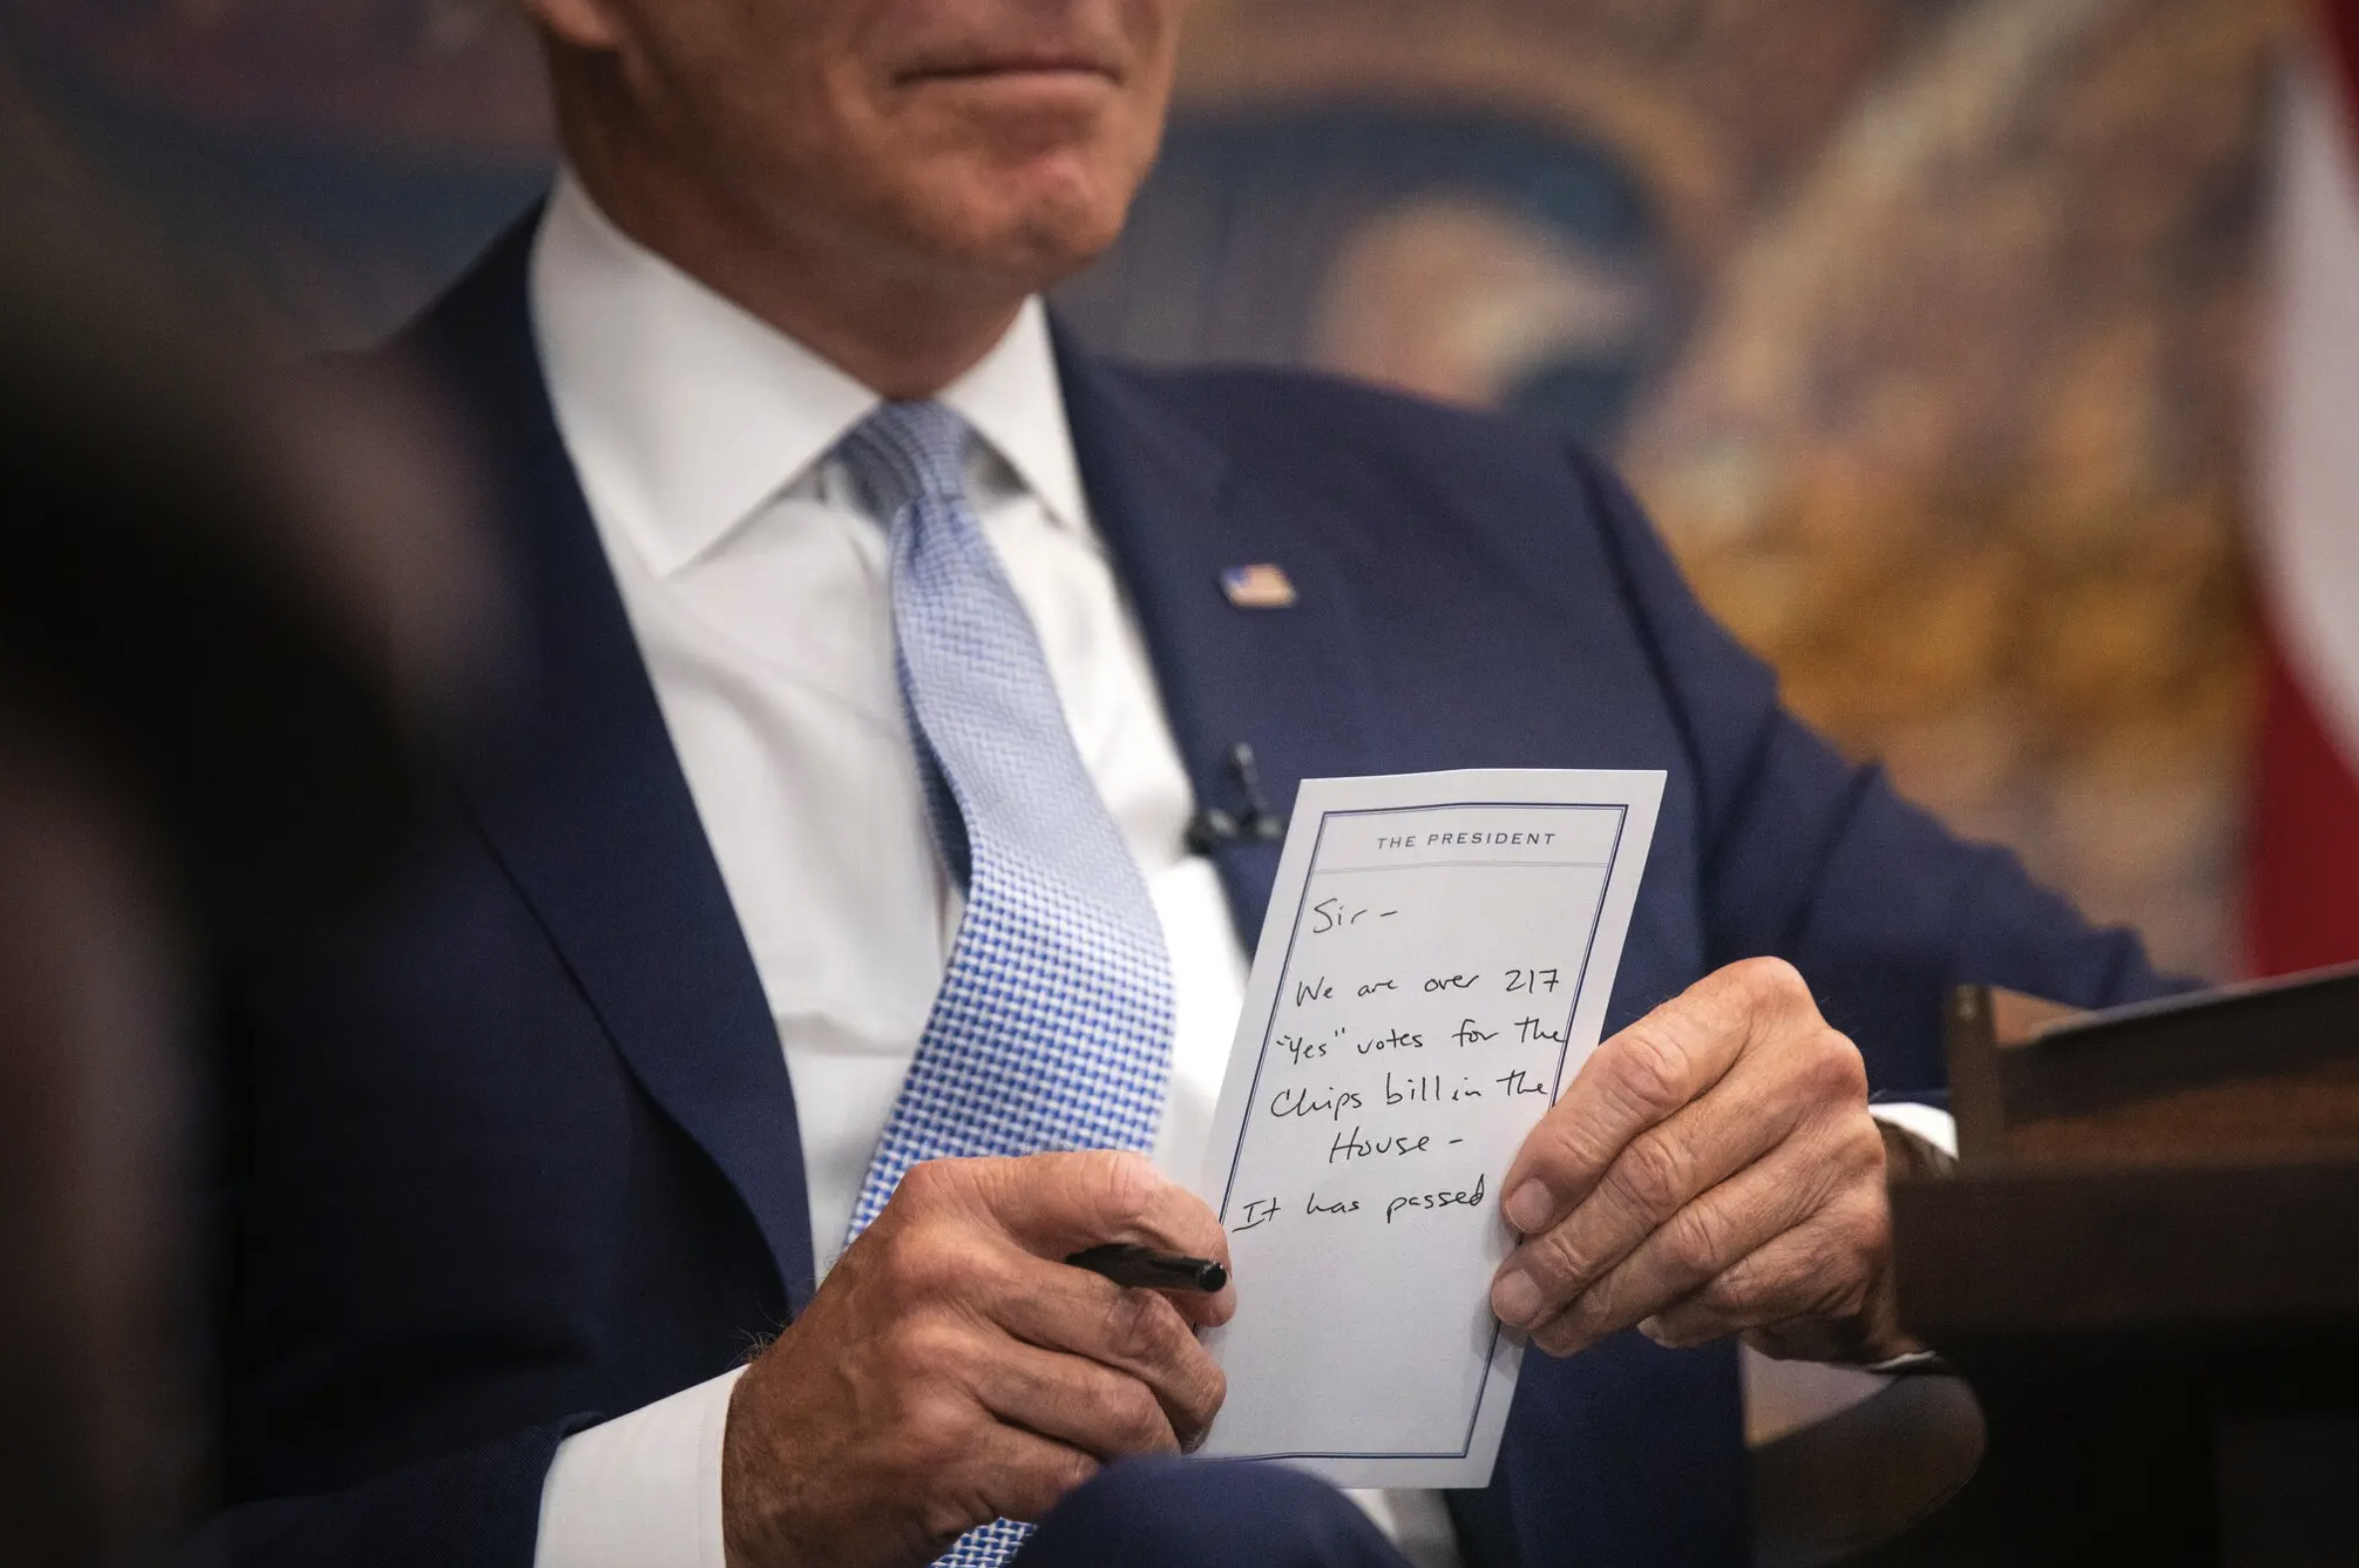 THE PRESIDENT
Sir -
We are over 217
"Yes" votes for the
Chips bill in the
House -
It has passed